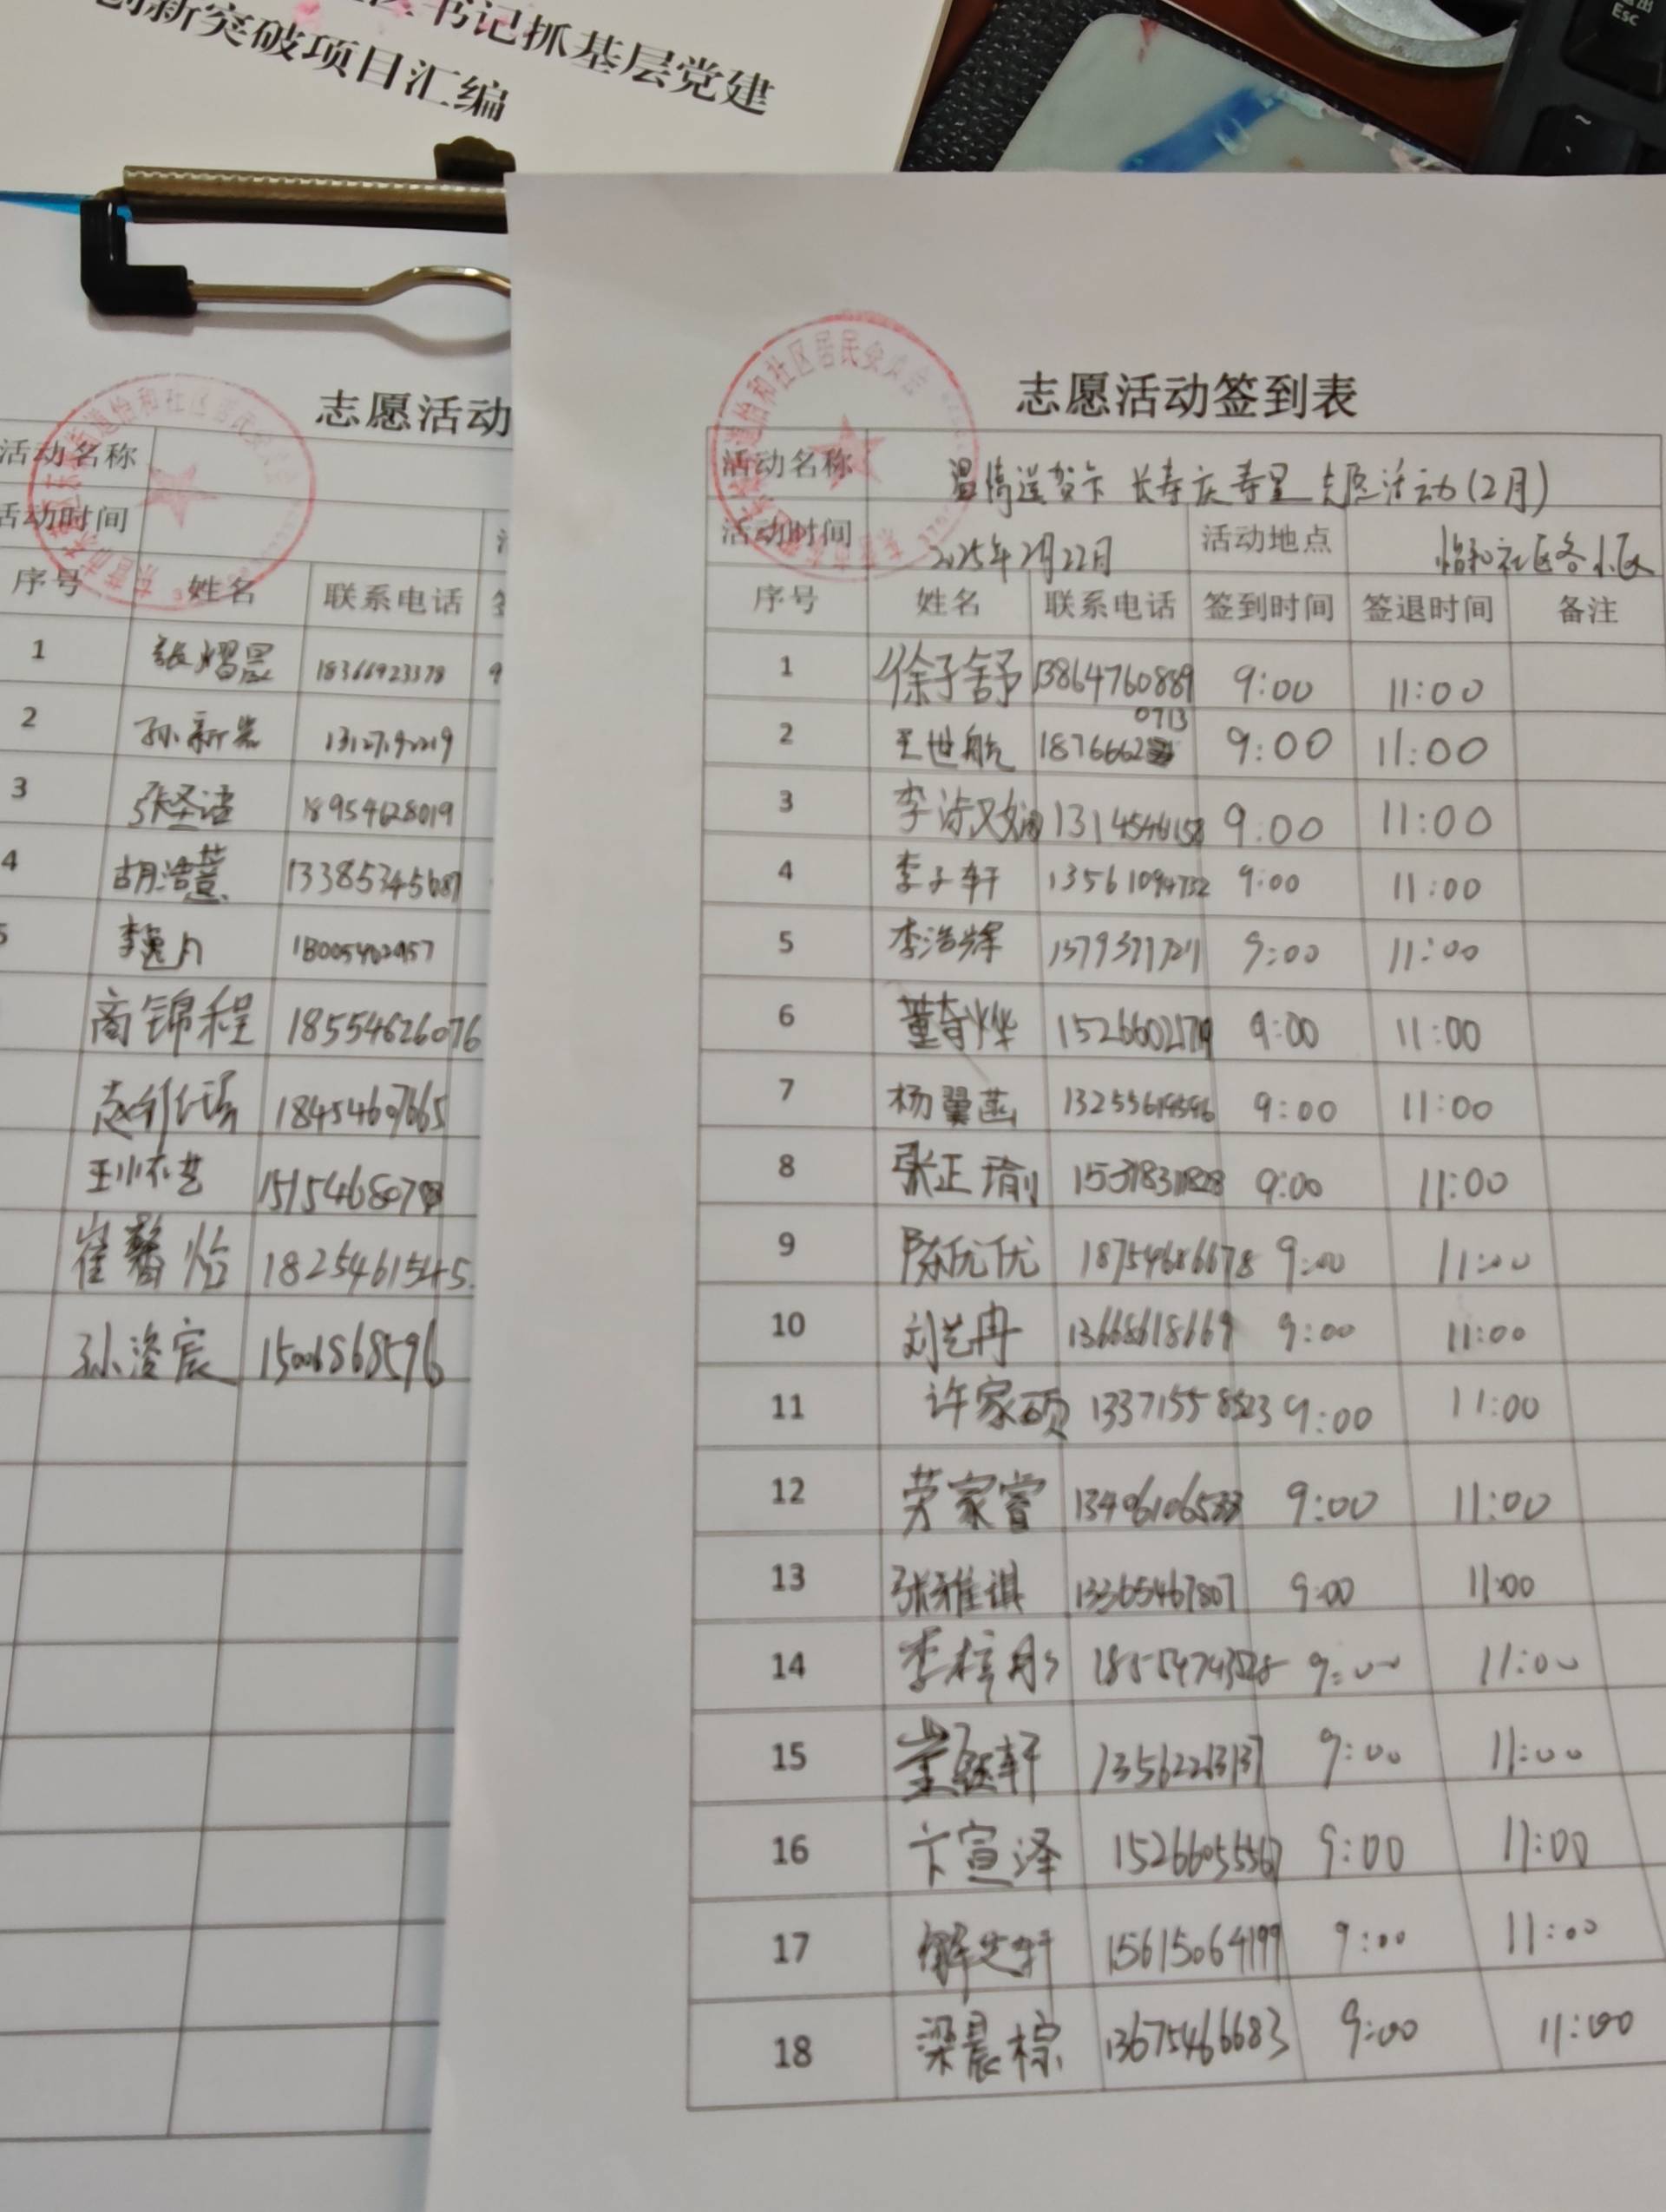 书记抓基层党建
创新突破项目汇编
志愿活动
活动名称
活动时间
序号 姓名 联系电话
1 18366923378
2 孙新岩
3 张圣洁 18954628019
4 胡浩薏 13385345687
李逸凡
商锦程 18554626076
18454607665
崔馨怡 18254615145
孙浚宸 15006868596
志愿活动签到表
怡和社区居民委员会
活动名称 温情送贺卡 长寿庆寿星 志愿活动(2月)
活动时间 2025年2月22日 活动地点 怡和社区各小区
序号 姓名 联系电话 签到时间 签退时间 备注
1 徐子舒 13864760889 9:00 11:00
2 王世航 18766620713 9:00 11:00
3 1314546158 9:00 11:00
4 李子轩 13561094732 9:00 11:00
5 李浩辉 9:00 11:00
6 董奇烨 9:00 11:00
7 杨翼菡 9:00 11:00
8 张正瑜 9:00 11:00
9 陈优优 18754686678 9:00 11:00
10 刘艺冉 13668618669 9:00 11:00
11 许家硕 13371558523 9:00 11:00
12 劳家睿 13406106533 9:00 11:00
13 张雅琪 13365467807 9:00 11:00
14 李梓彤 18554743528 9:00 11:00
15 9:00 11:00
16 卞宣泽 15266055567 9:00 11:00
17 解艾轩 15615064199 9:00 11:00
18 梁晨棕 13675466683 9:00 11:00
Esc